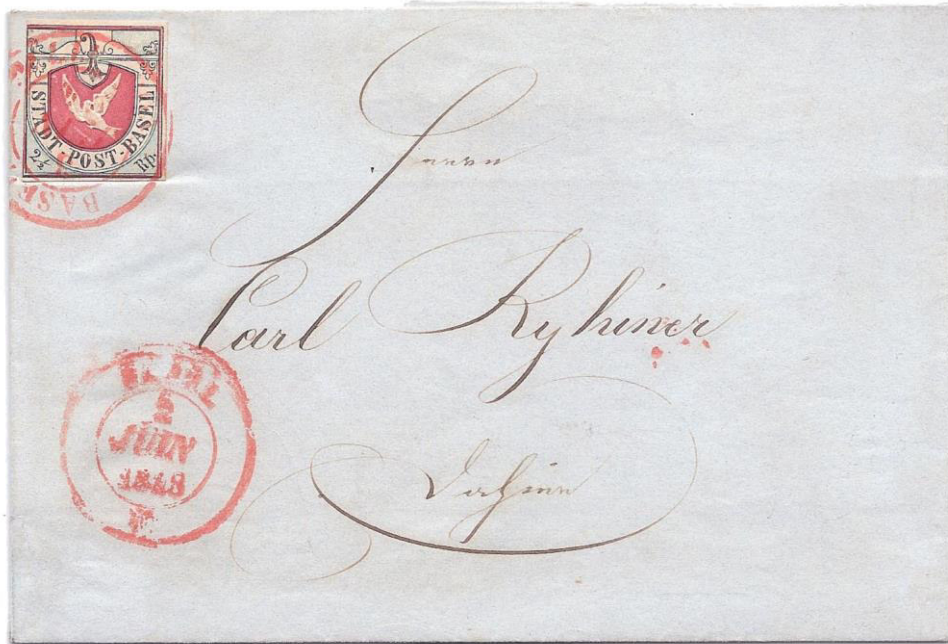 STADT-POST-BASEL
2½ Rp.
BASEL
Herrn
Carl Ryhiner
Dahier
BASEL
2
JUIN
1848